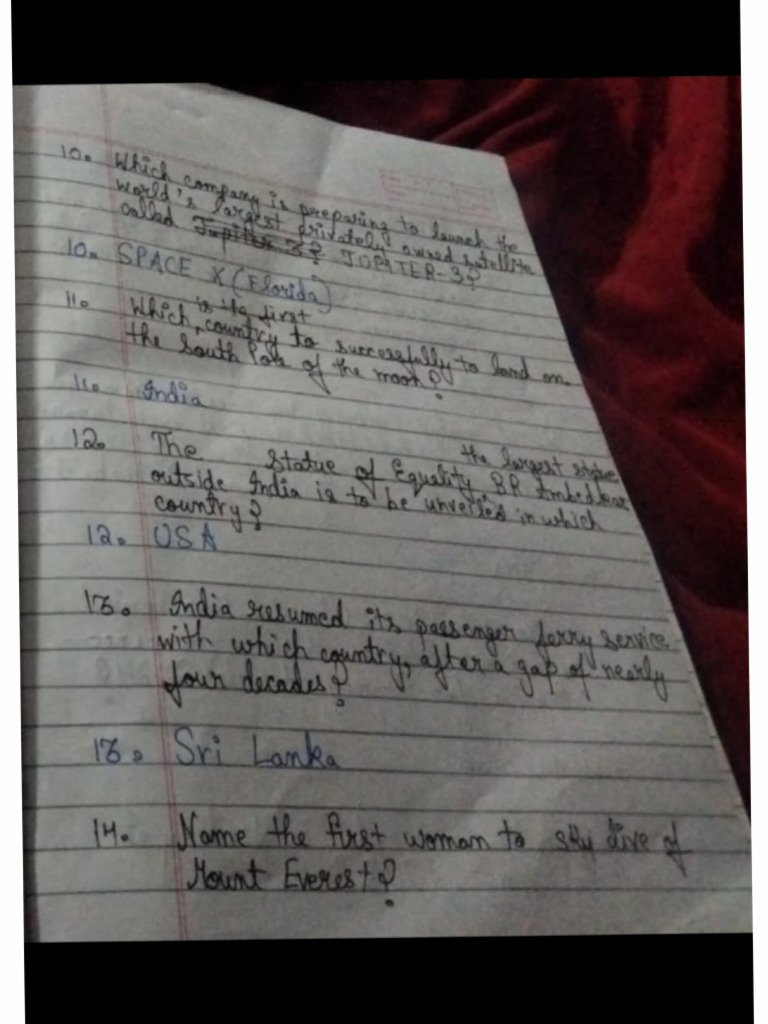 10. Which company is preparing to launch the
world's largest privately owned satellite
called Jupiter 3? JUPITER-3?
10. SPACE X (Florida)
is the first
11. Which country to successfully to land on
the South Pole of the moon?
11. India
the largest statue
12. The Statue of Equality BR Ambedkar
outside India is to be unveiled in which
country?
12. USA
13. India resumed its passenger ferry service
with which country, after a gap of nearly
four decades?
13. Sri Lanka
14. Name the first woman to sky dive of
Mount Everest?